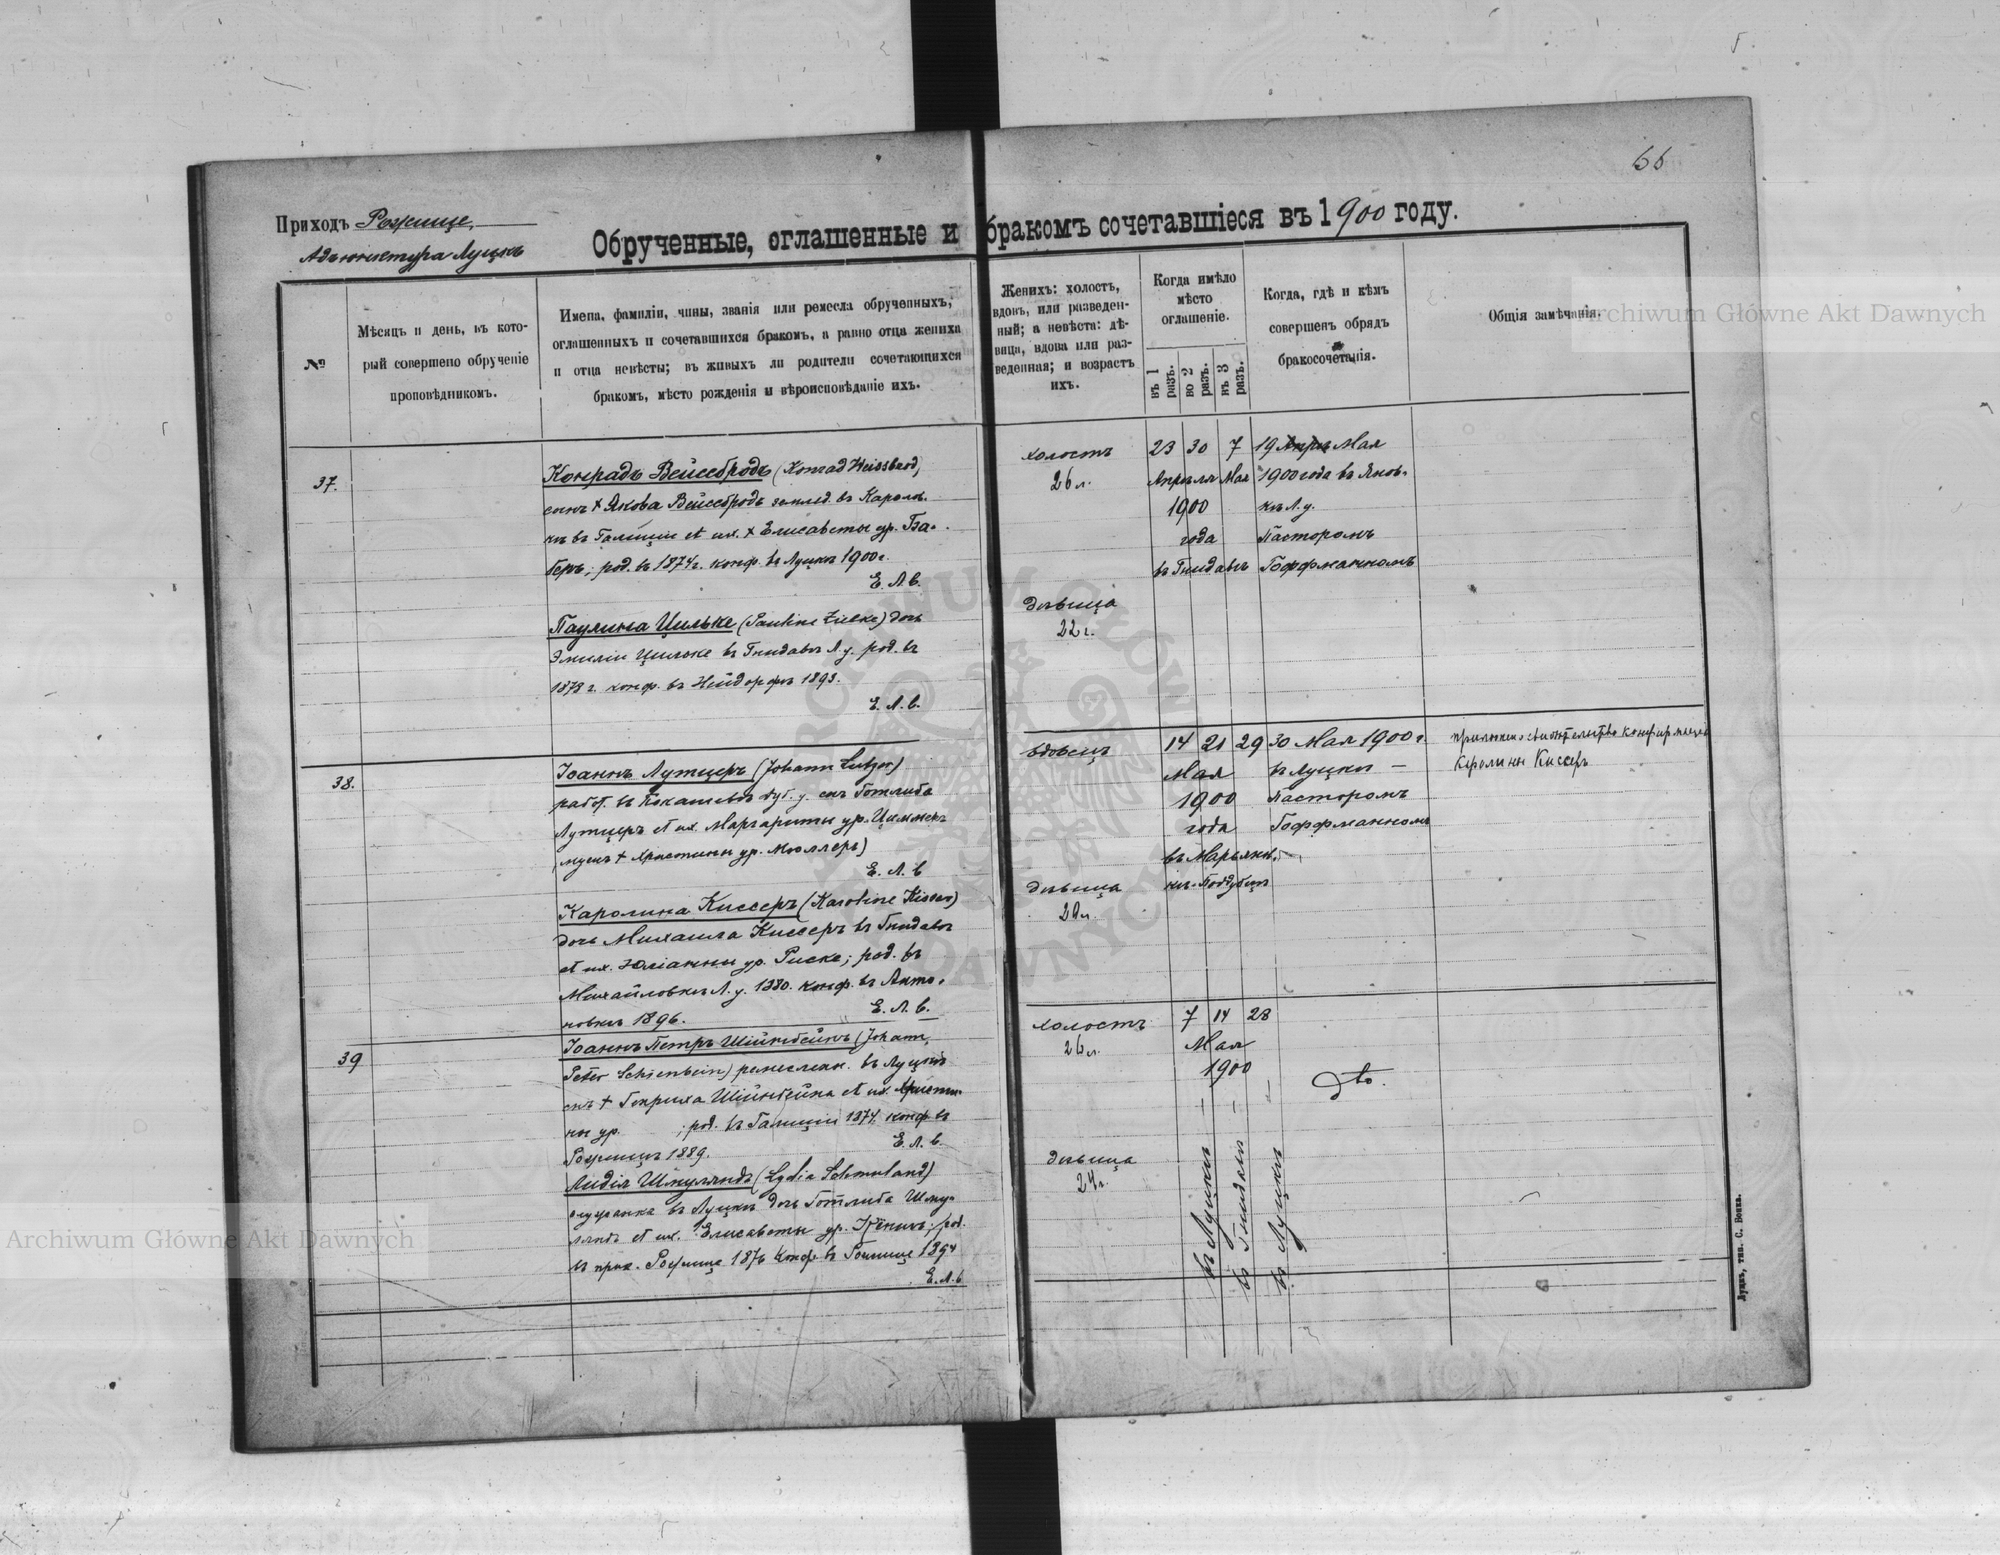 66
Приходъ Рожище,
Адъюнктура Луцкъ
Обрученные, оглашенные и бракомъ сочетавшіеся въ 1900 году.
№
Мѣсяцъ и день, въ кото-
рый совершено обрученіе
проповѣдникомъ.
Имена, фамиліи, чины, званія или ремесла обрученныхъ,
оглашенныхъ и сочетавшихся бракомъ, а равно отца жениха
и отца невѣсты; въ живыхъ ли родители сочетающихся
бракомъ, мѣсто рожденія и вѣроисповѣданіе ихъ.
Женихъ: холостъ,
вдовъ, или разведен-
ный; а невѣста: дѣ-
вица, вдова или раз-
веденная; и возрастъ
ихъ.
Когда имѣло
мѣсто
оглашеніе.
въ 1 разъ.
во 2 разъ.
въ 3 разъ.
Когда, гдѣ и кѣмъ
совершенъ обрядъ
бракосочетанія.
Общія замѣчанія.
37.
Конрадъ Вейссбродъ (Konrad Weissbrod,
сынъ + Якова Вейссбродъ землед. въ Каролов-
кѣ въ Галиціи et ux. + Елисаветы ур. Ба-
беръ; род. въ 1874 г. конф. въ Луцкѣ 1900 г.
Е. Л. в.
Паулина Цильке (Pauline Zielke) дочь
Эмиліи Цильке въ Гнидавѣ Л. у. род. въ
1878 г. конф. въ Нейдорфѣ 1893.
Е. Л. в.
холостъ
26 л.
дѣвица
22 г.
23 30 7
Апрѣля Мая
1900
года
въ Гнидавѣ
19 Мая
1900 года въ Янов-
кѣ Л. у.
Пасторомъ
Гоффманномъ
38.
Іоаннъ Лутцеръ (Johann Lutzer)
работ. въ Дуб. у. сынъ Готлиба
Лутцеръ et ux. Маргариты ур. Циммер
(мужъ + Христины ур. Мюллеръ)
Е. Л. в
Каролина Киссеръ (Karoline Kisser)
дочь Михаила Киссеръ въ Гнидавѣ
et ux. Юліанны ур. Риске; род. въ
Михайловкѣ Л. у. 1880. конф. въ Анто-
новкѣ 1896.
Е. Л. в.
вдовецъ
дѣвица
20 л.
14 21 29
Мая
1900
года
въ Марьянов-
кѣ-Поддубцѣ
30 Мая 1900 г.
въ Луцкѣ —
Пасторомъ
Гоффманномъ
приложено свидѣтельство конфирмаціи
Каролины Киссеръ
39
Іоаннъ Петръ Шійнбейнъ (Johann,
Peter Schienbein) ремеслен. въ Луцкѣ
сынъ + Генриха Шійнбейна et ux. Христи-
ны ур. ; род. въ Галиціи 1874. конф. въ
Рожищѣ 1889.
Е. Л. в.
Лидія Шмуляндъ (Lydia Schmuland)
служанка въ Луцкѣ дочь Готлиба Шму-
ляндъ et ux. Елисаветы ур. Кёнигъ; род.
въ прих. Рожище 1876 конф. въ Рожище 1894
Е. Л. в
холостъ
26 л.
дѣвица
24 г.
7 14 28
Мая
1900
въ Луцкѣ
въ Гнидавѣ
въ Луцкѣ
dto.
Луцкъ, тип. С. Бокв.
Archiwum Główne Akt Dawnych
Archiwum Główne Akt Dawnych
ARCHIWUM GŁÓWNE AKT DAWNYCH